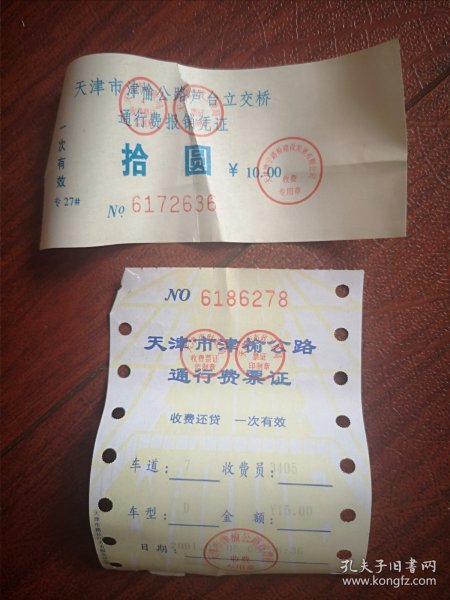 天津市津榆公路芦台立交桥
通行费报销凭证
一次有效
拾圆 ¥10.00
专27# No 6172636
收费
专用章
NO 6186278
天津市津榆公路
通行费票证
收费票证
印制章
票证
印制章
收费还贷 一次有效
车道:7 收费员:3405
车型:D 金额:¥15.00
日期:
收费
专用章
孔夫子旧书网
www.kongfz.com